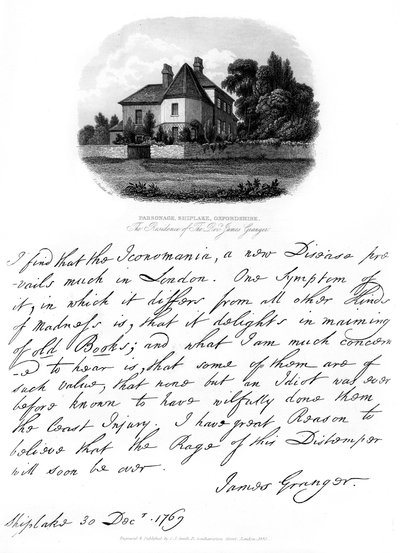 PARSONAGE, SHIPLAKE, OXFORDSHIRE.
The Residence of The Revd. James Granger.
I find that the Iconomania, a new Disease pre
-vails much in London. One Symptom of
it, in which it differs from all other Kinds
of Madness is, that it delights in maiming
of old Books; and what I am much concern
-ed to hear is, that some of them are of
such value, that none but an Idiot was ever
before known to have wilfully done them
the least Injury. I have great Reason to
believe that the Rage of this Distemper
will soon be over.
James Granger.
Shiplake 30 Decr. 1769
Engraved & Published by Southampton Street, London,